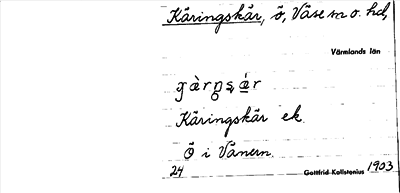 Käringskär, ö, Väse sn o. hd,
Värmlands län
Käringskär ek.
Ö i Vänern.
24 Gottfrid Kallstenius 1903